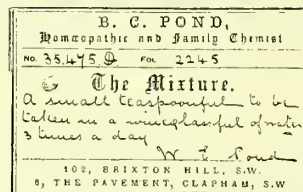 B. C. POND,
Homœopathic and Family Chemist
No. 35,475 D Fol. 2245
The Mixture.
A small teaspoonful to be
taken in a wineglassful of water
3 times a day
W E Pond
102, BRIXTON HILL, S.W.
6, THE PAVEMENT, CLAPHAM, S.W